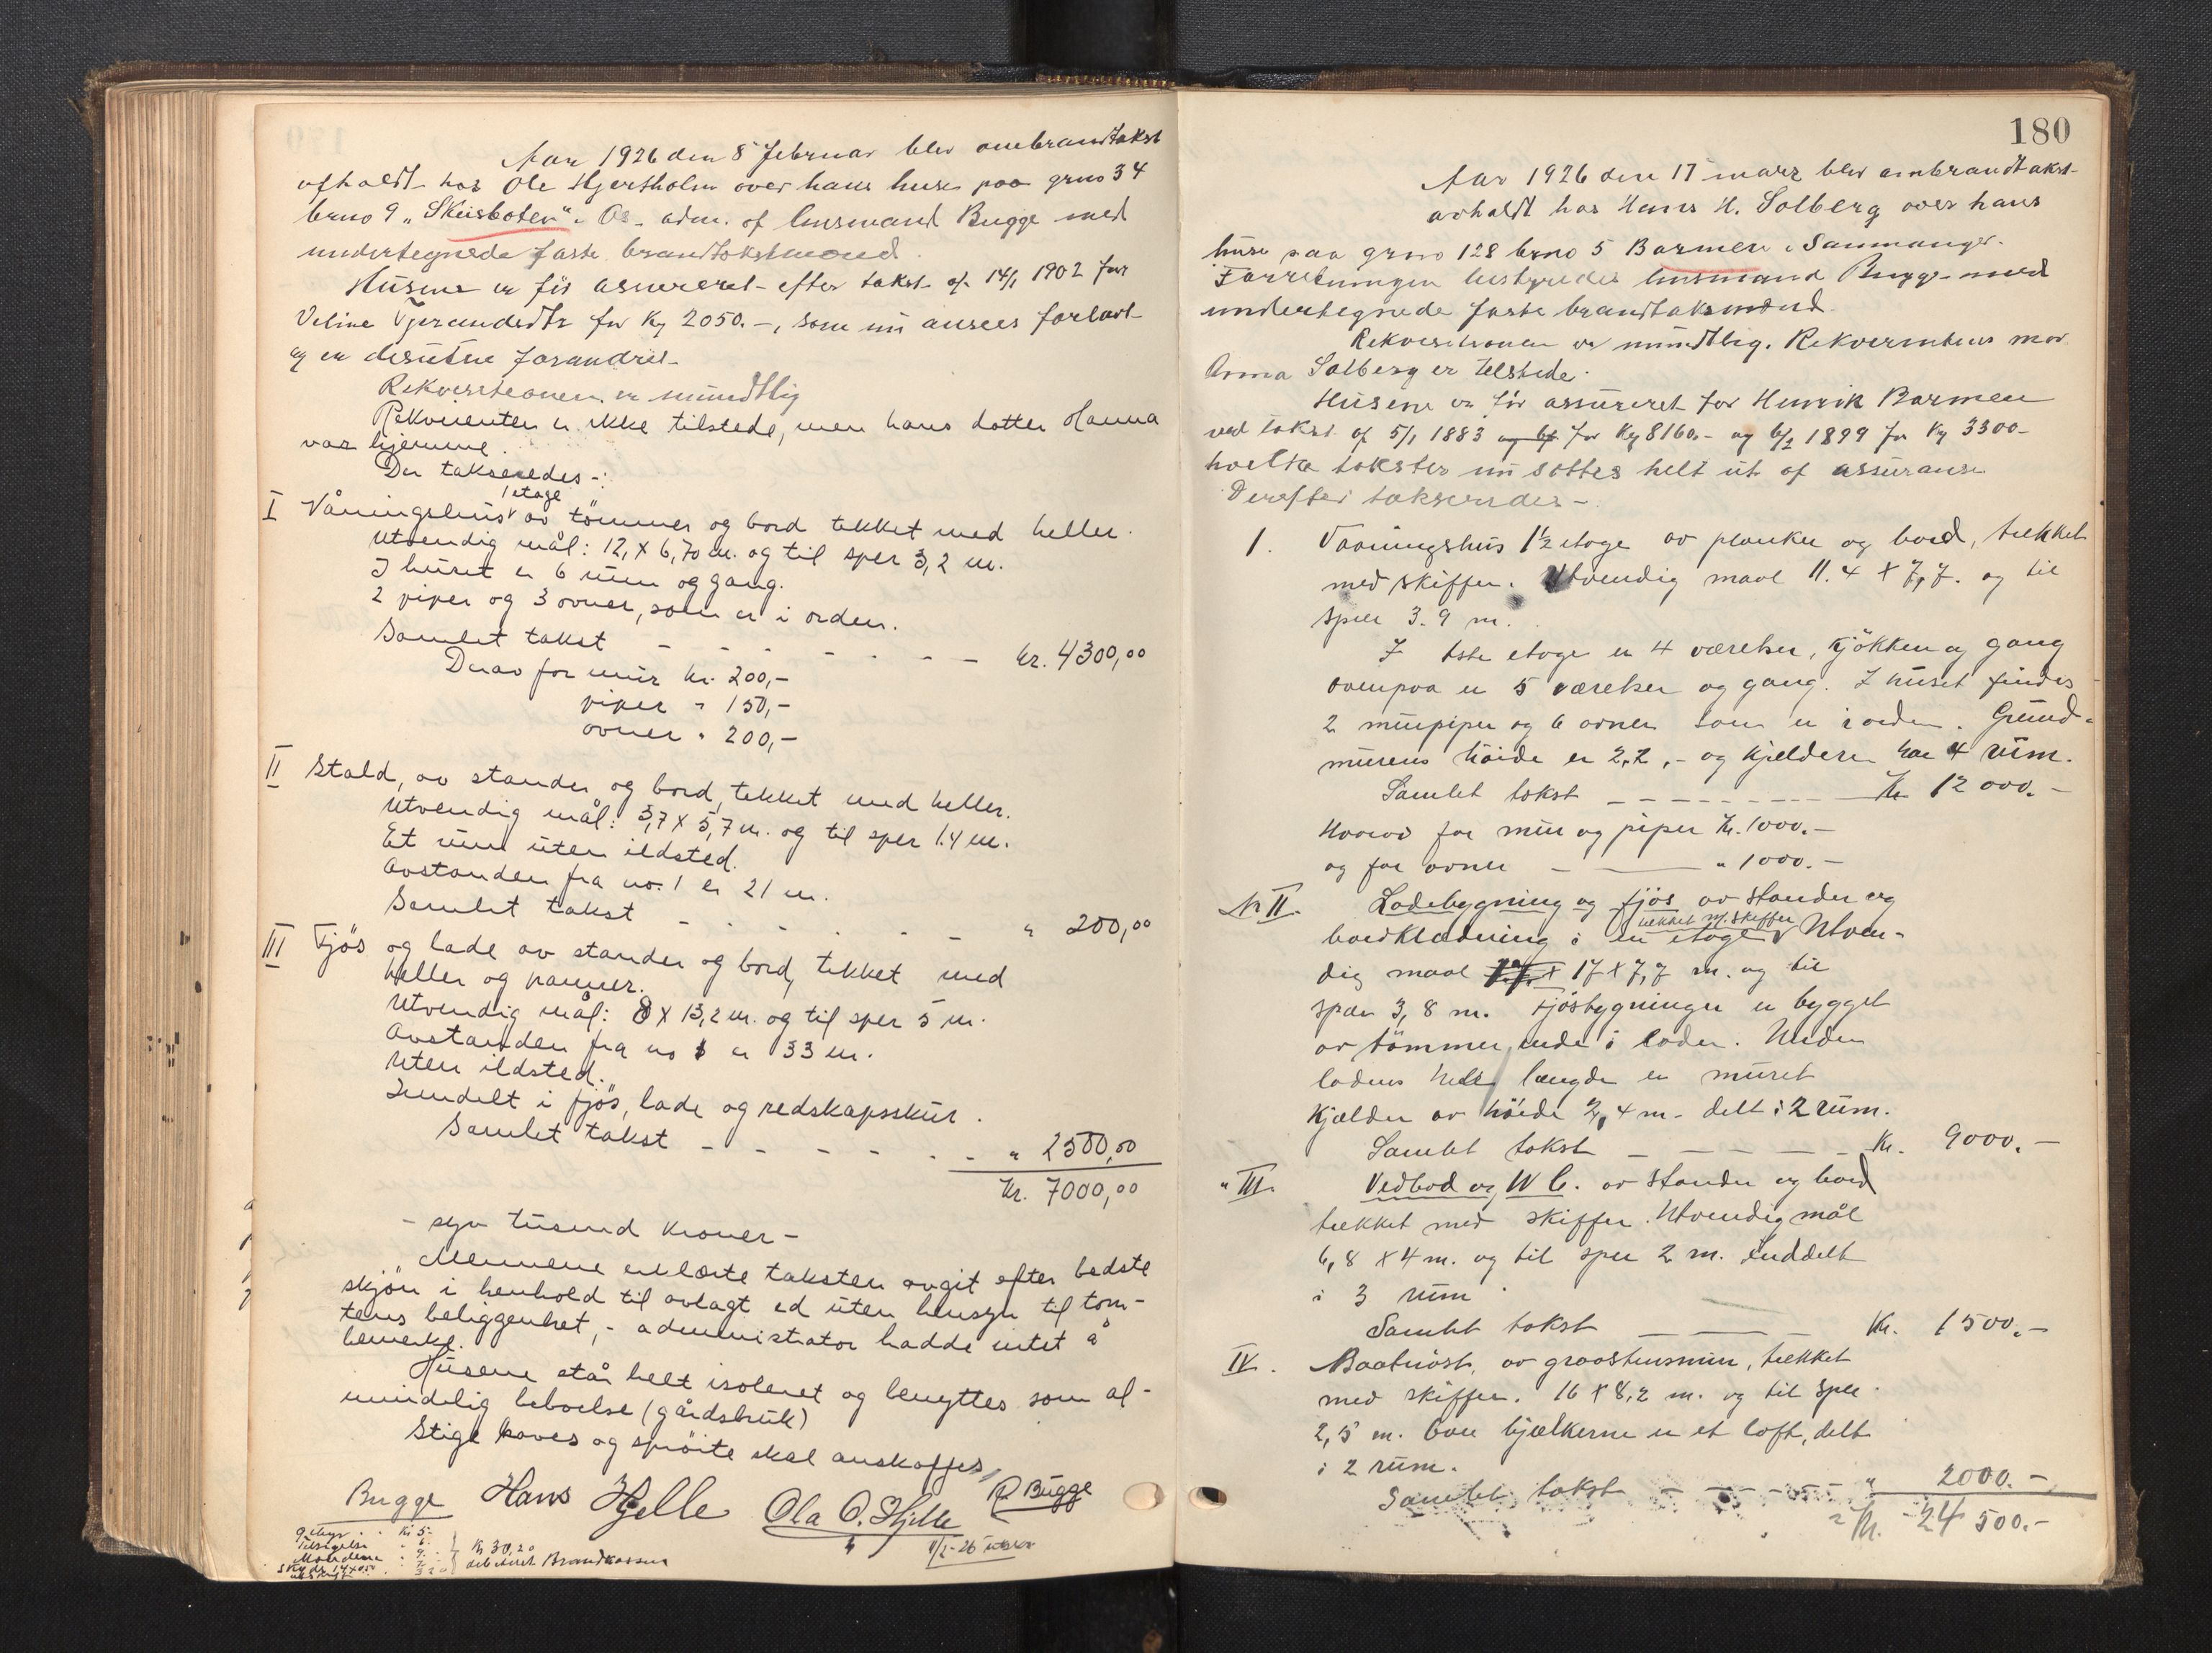 Aar 1926 den 8 februar blev ombrandtakst
afholdt hos Ole Hjertholm over hans huse paa grno 34
brno 9 "Skeisboten" i Os - adm. af lensmand Bugge med
undertegnede faste brandtakstmænd.
Husene er før assureret efter takst af 14/1 1902 for
Veline Tyssandedtr for Kr 2050.-, som nu ansees forlavt
og er desuten forandret.
Rekvisitionen er mundtlig
Rekvirenten er ikke tilstede, men hans datter Hanna
var hjemme.
Der takseredes -:
I Våningshus 1 etage av tömmer og bord tekket med heller.
Utvendig mål: 12, x 6,70 m. og til sper 3,2 m.
I huset er 6 rum og gang.
2 piper og 3 ovner, som er i orden.
Samlet takst - - - - - - - kr. 4300,00
Derav for mur kr. 200,-
piper " 150,-
ovner " 200,-
II Stald, av stander og bord, tekket med heller.
Utvendig mål: 3,7 x 5,7 m. og til sper 1.4 m.
Et rum uten ildsted.
Avstanden fra no. 1 er 21 m.
Samlet takst - - - - - - " 200,00
III Fjös og lade av stander og bord, tekket med
heller og panner.
Utvendig mål: 8 x 13,2 m. og til sper 5 m.
Avstanden fra no 1 er 33 m.
Uten ildsted.
Inndelt i fjös, lade og redskapsskur.
Samlet takst - - - - - - " 2500,00
Kr. 7000,00
- syv tusend kroner -
Mennene erklærte taksten avgit efter bedste
skjön i henhold til avlagt ed uten hensyn til tom-
tens beliggenhet, - administrator hadde intet å
bemerke.
Husene står helt isoleret og benyttes som al-
mindelig beboelse (gårdsbruk)
Stige haves og spröite skal anskaffes,
Bugge Hans Hjelle Ola O. Hjelle R Bugge
Gebyr . . Kr 5.-
Tilsigelse " 6.-
Mændene " 9.- Kr 30,20
Skyds 14x050 7.- debiteret Brandkassen
avskrift 3 20
11/2-26 utskr
180
Aar 1926 den 17 mars blev ombrandtakst
avholdt hos Hans H. Solberg over hans
huse paa grno 128 brno 5 Barmen i Samnanger.
Forretningen bestyredes lensmand Bugge med
undertegnede faste brandtaksmænd.
Rekvisitionen er mundtlig. Rekvirentens mor
Anna Solberg er tilstede.
Husene er før assureret for Henrik Barmen
ved takst af 5/1 1883 for Kr 8160.- og 6/2 1899 for Kr 3300-
hvilke takster nu sættes helt ut af assuranse
Derefter takseredes -
1. Vaaningshus 1½ etage av planker og bord, tækket
med skiffer. Utvendig maal 11.4 x 7,7. og til
sper 3.9 m.
I 1ste etage er 4 værelser, kjökken og gang
ovenpaa er 5 værelser og gang. I huset findes
2 murpiper og 6 ovner som er i orden. Grund-
murens höide er 2,2,- og kjelderen har 4 rum.
Samlet takst - - - - - - - - Kr 12 000.-
Hvorav for mur og piper Kr. 1000.-
og for ovner - - " 1000.-
Nr II. Ladebygning og fjös av stander og
bordklædning i en etage tækket m. skiffer Utven-
dig maal 17 x 7,7 m. og til
sper 3,8 m. Fjösbygningen er bygget
av tömmer, inde i laden. Under
ladens hele længde er muret
kjælder av höide 2,4 m - delt i 2 rum.
Samlet takst - - - - - Kr. 9000.-
" III. Vedbod og W C. av stander og bord
tækket med skiffer. Utvendig mål
6,8 x 4 m. og til sper 2 m. Inddelt
i 3 rum
Samlet takst - - - Kr. 1500.-
IV. Baatnöst, av graastensmur, tækket
med skiffer. 16 x 8,2 m. og til sper
2,5 m. Over bjælkerne er et loft, delt
i 2 rum.
Samlet takst - - - - - " 2000.-
Kr. 24 500.-